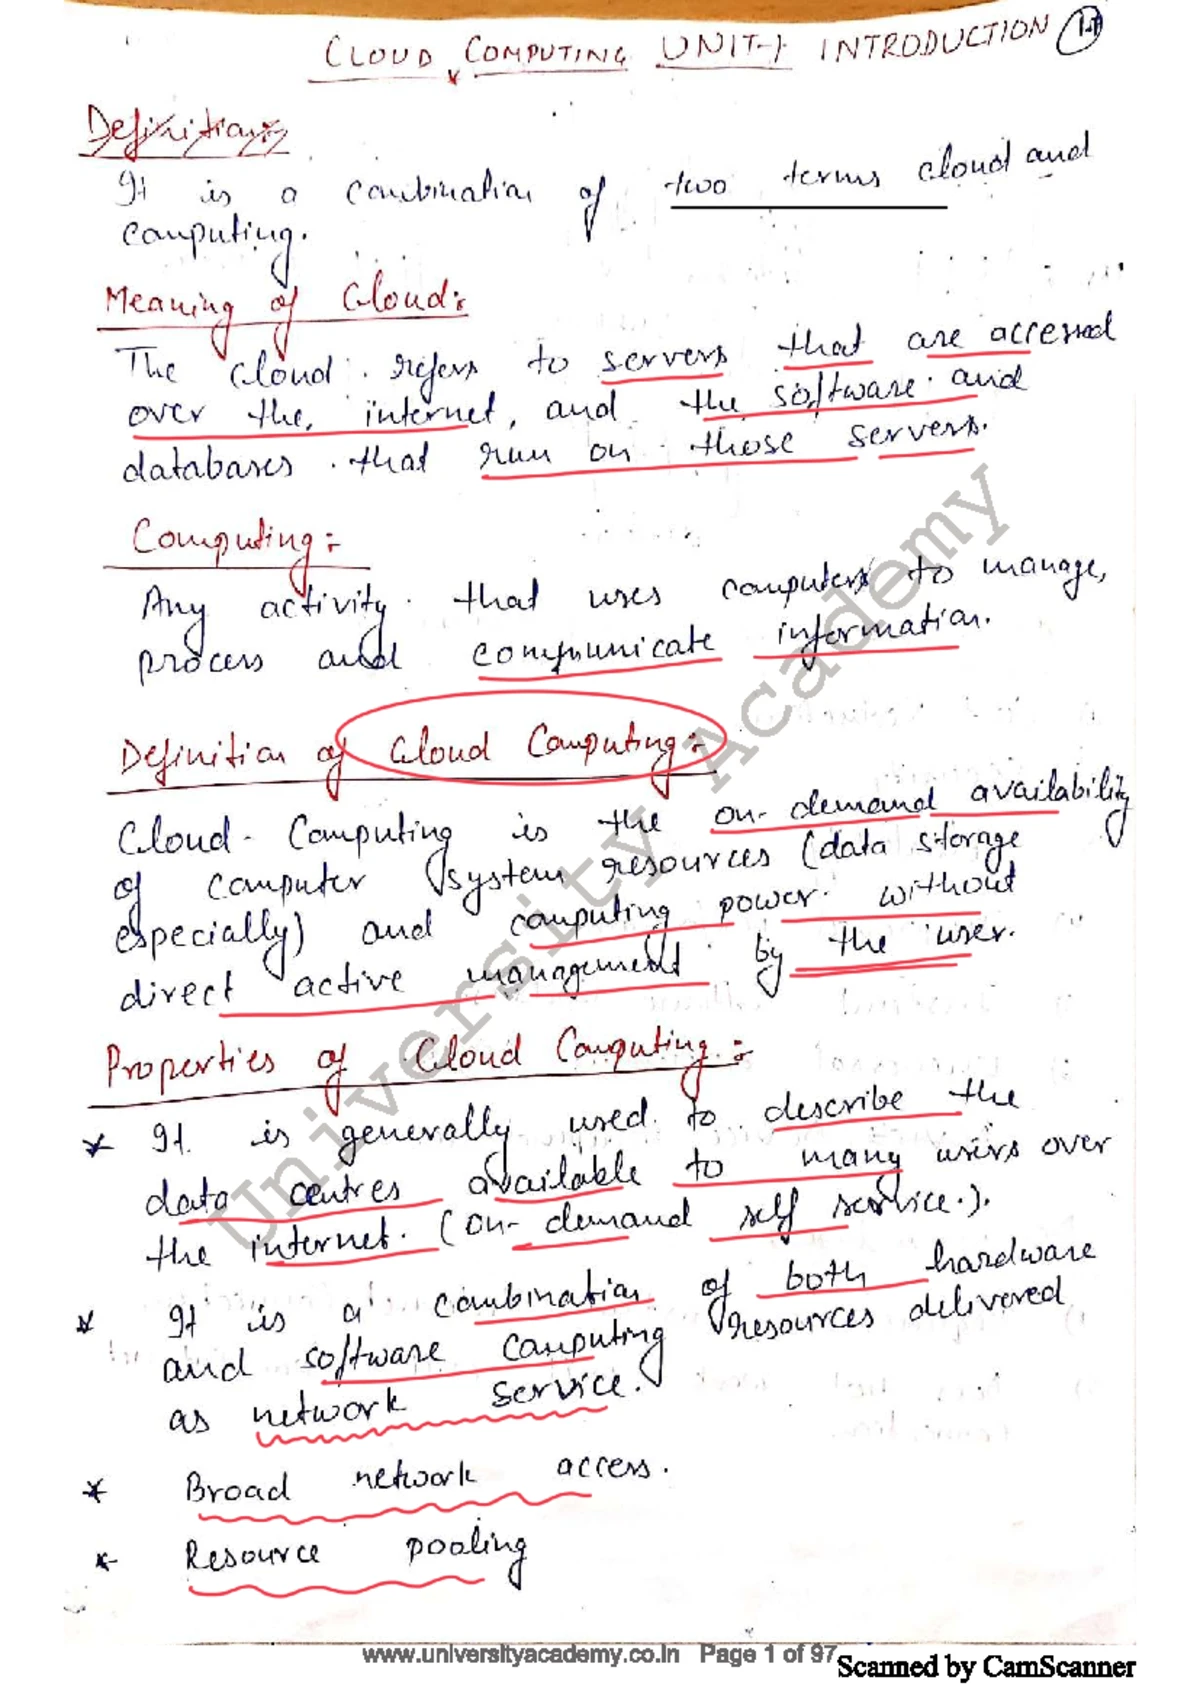 CLOUD COMPUTING UNIT-1 INTRODUCTION
Definition:-
It is a combination of two terms cloud and
computing.
Meaning of Cloud:-
The cloud refers to servers that are accessed
over the internet, and the software and
databases that run on those servers.
Computing:-
Any activity that uses computers to manage,
process and communicate information.
Definition of Cloud Computing:-
Cloud Computing is the on-demand availability
of computer system resources (data storage
especially) and computing power without
direct active management by the user.
Properties of Cloud Computing:-
* It is generally used to describe the
data centres available to many users over
the internet. (on-demand self service.).
* It is a combination of both hardware
and software computing resources delivered
as network service.
* Broad network access.
* Resource pooling
University Academy
www.universityacademy.co.in Page 1 of 97
Scanned by CamScanner